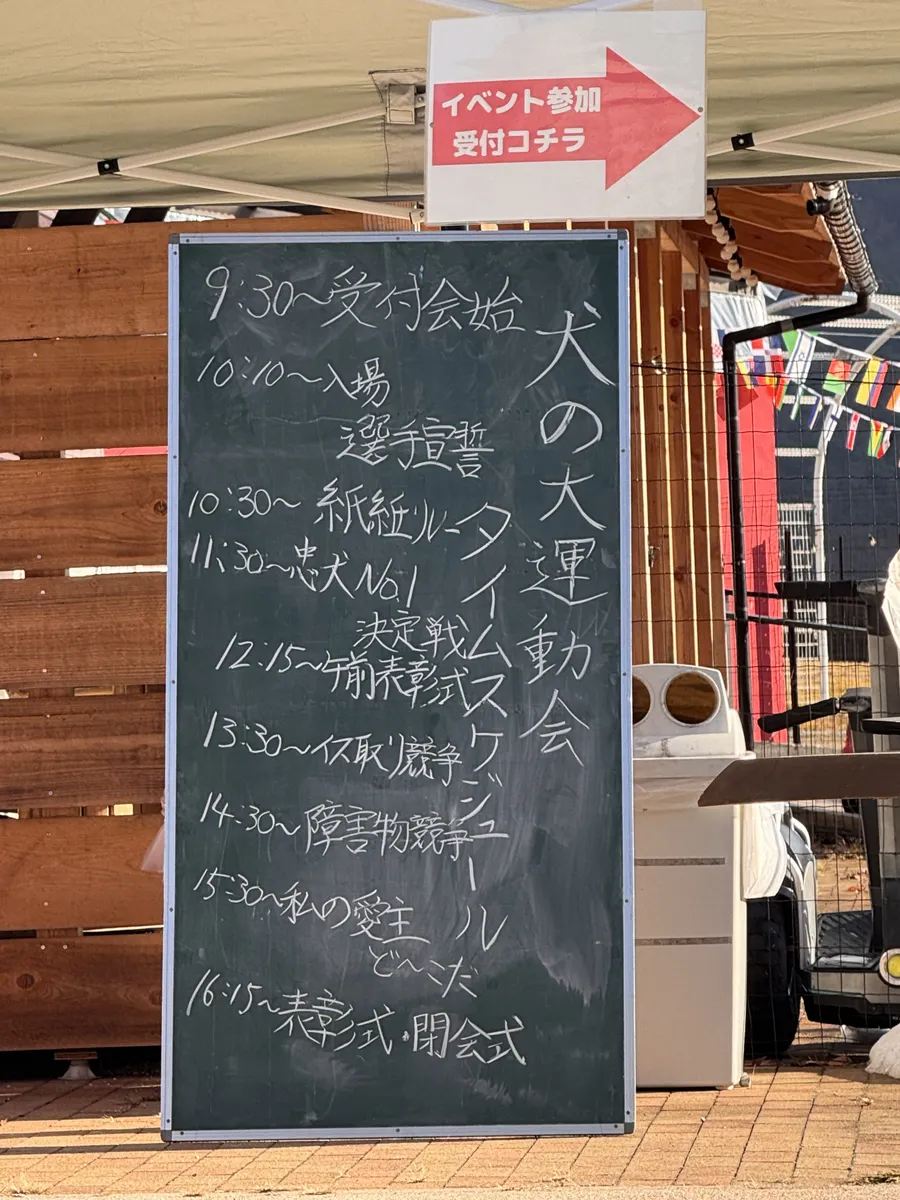 イベント参加
受付コチラ
犬の大運動会
タイムスケジュール
9:30～受付会始
10:10～入場
選手宣誓
10:30～紙紙リレー
11:30～忠犬No.1
決定戦
12:15～午前表彰式
13:30～イス取り競争
14:30～障害物競争
15:30～私の愛主
ど～こだ
16:15～表彰式・閉会式